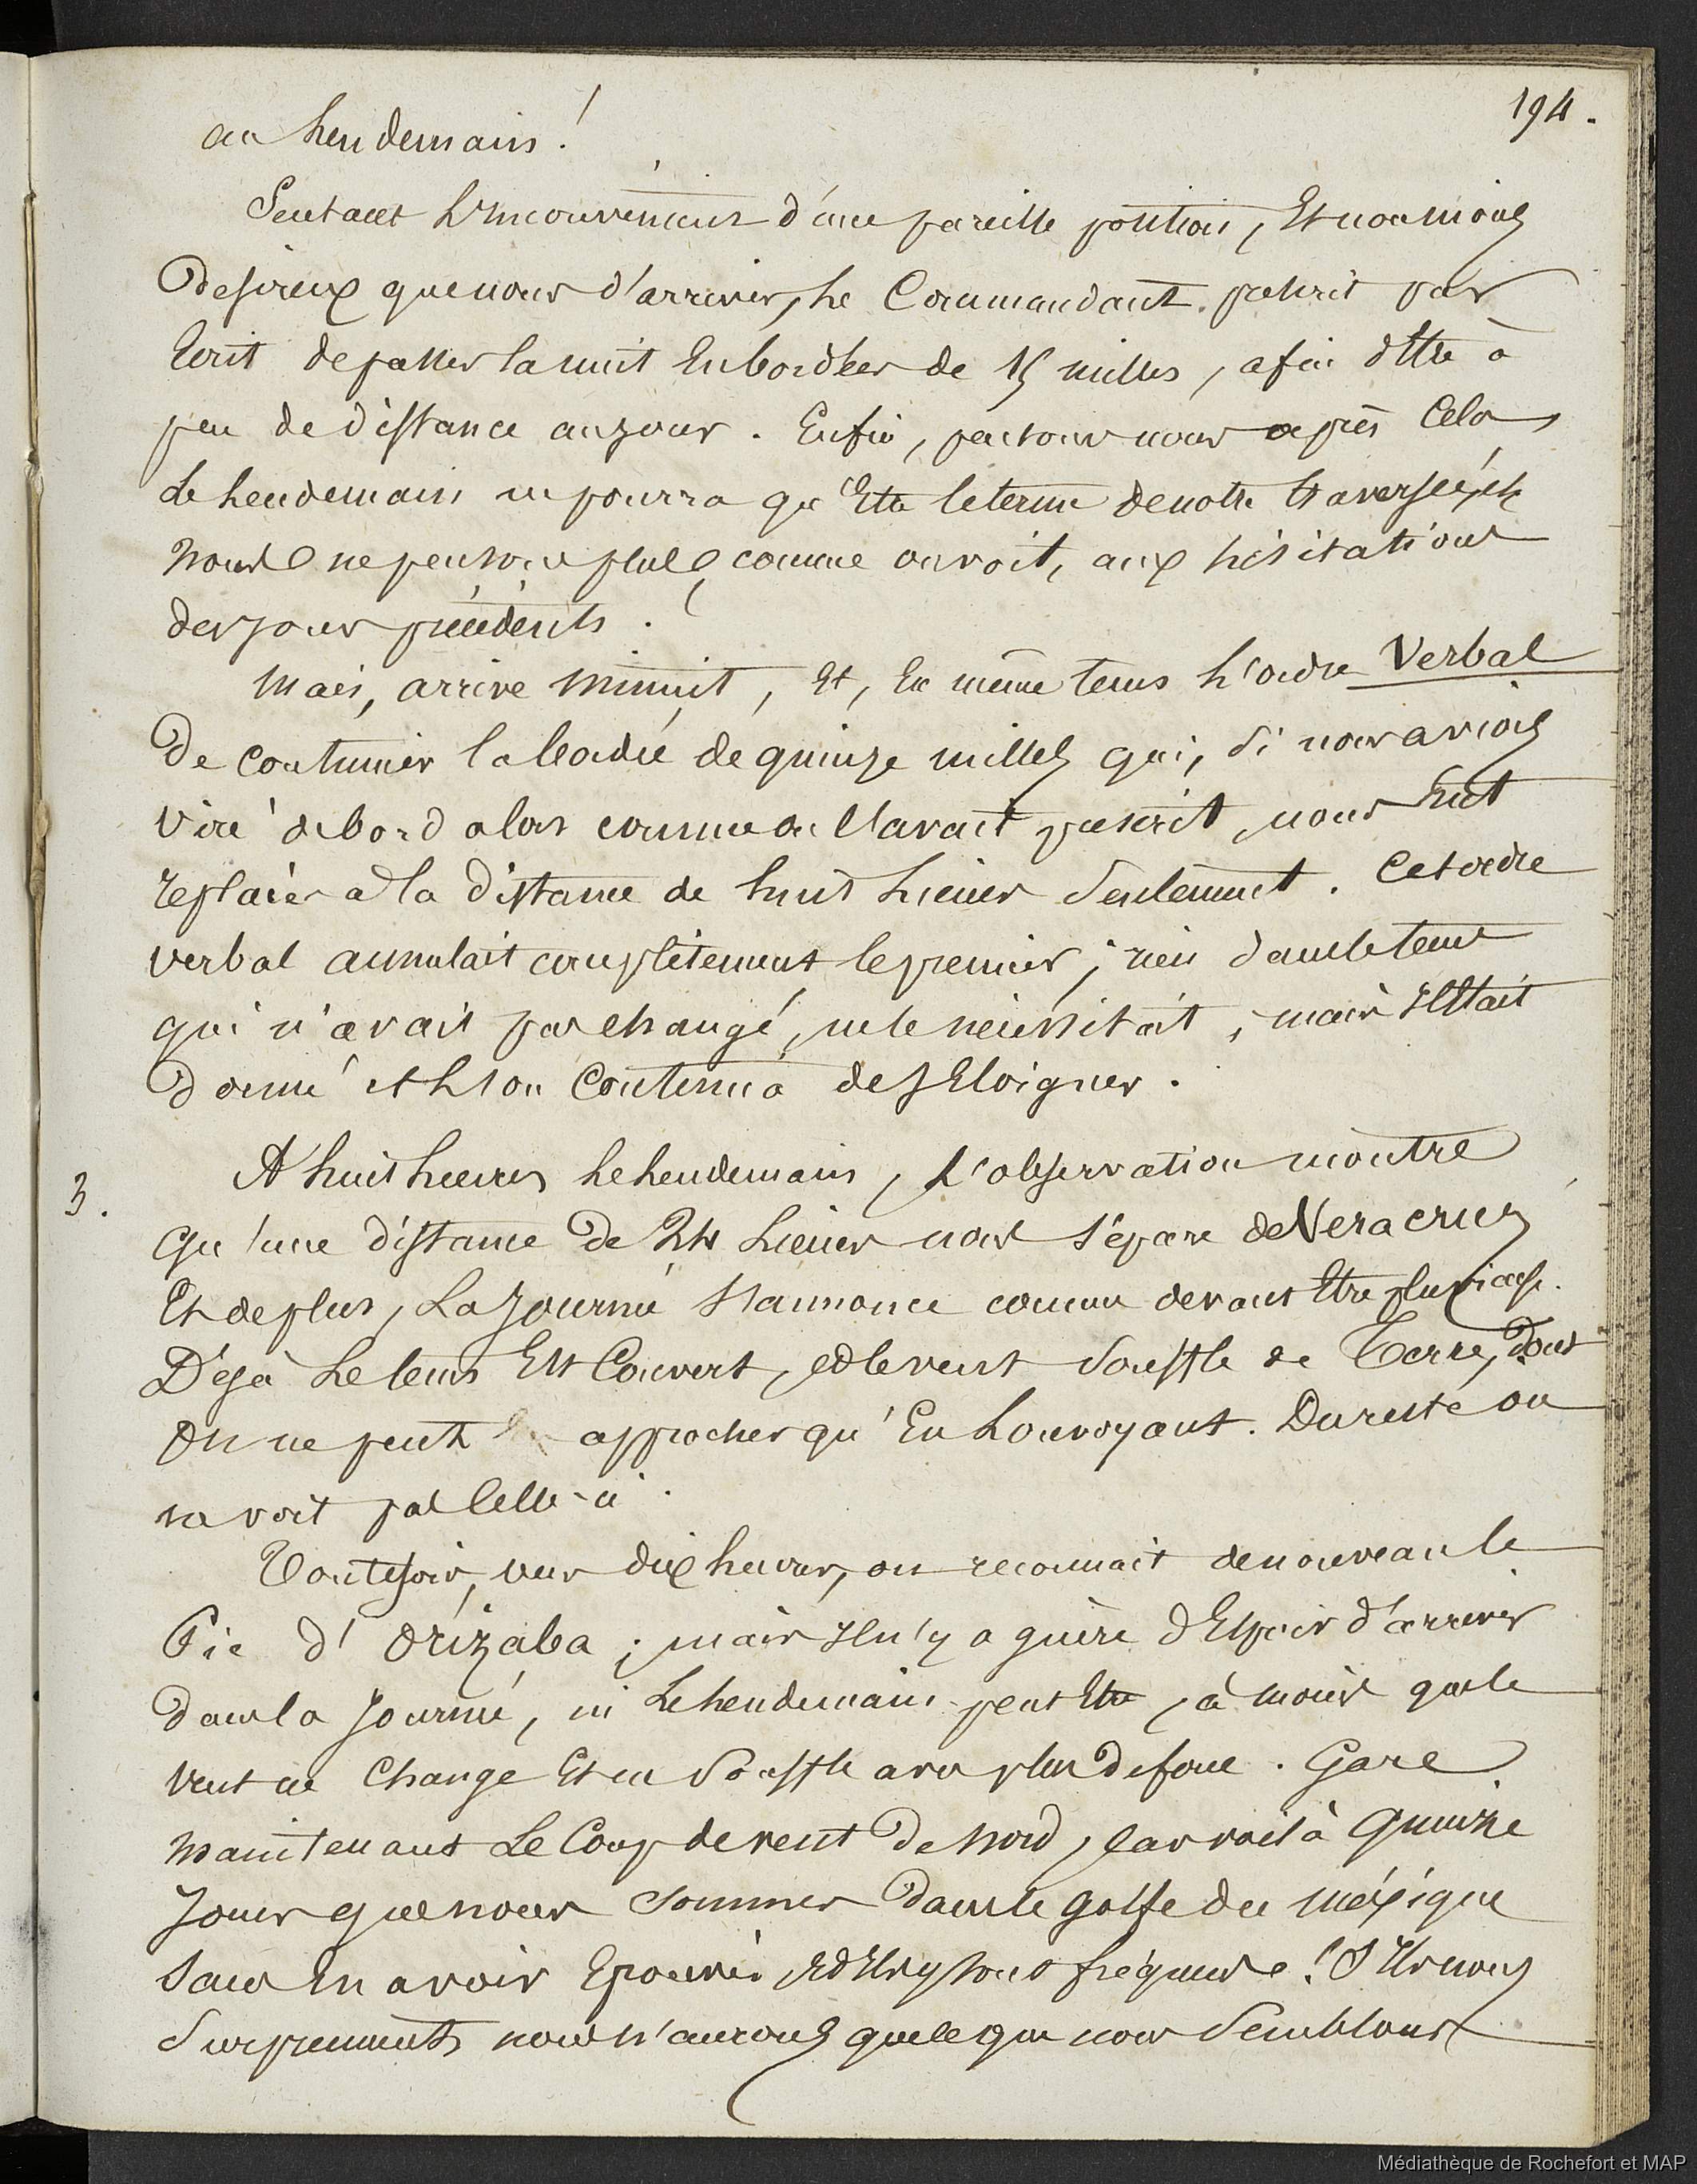 194.
au Lendemain !
Sentant L'inconvénient d'une pareille position, Et non moins
Desireux que nous d'arriver, Le Commandant prescrit par
Ecrit de passer la nuit En bordées de 15 milles, afin d'Etre à
peu de distance au jour. Enfin, pensons nous après Cela
Le Lendemain ne pourra qu'Etre le terme de notre traversée, et
Nous ne pensons plus, comme on voit, aux hésitations
des jours précédents.
Mais, arrive Minuit, Et, En même tems L'ordre Verbal
De Continuer la bordée de quinze milles qui, Si nous avions
viré de bord alors comme on l'avait prescrit, nous Eut
replacés à la distance de huit Lieues Seulement. Cet ordre
verbal annulait complètement le premier ; rien dans le tems
qui n'avait pas changé, ne le nécessitait ; mais Il Etait
Donné et L'on Continua de s'Eloigner.
3.
A huit heures Le Lendemain, L'observation montre
qu'une distance De 24 Lieues nous sépare de Vera cruz
Et de plus, La Journée s'annonce comme devant Etre pluvieuse.
Déjà Le tems Est Couvert, et le vent Souffle de Terre, Dont
On ne peut approcher qu'En Louvoyant. Du reste on
ne voit pas Celle-ci.
Toutefois, vers dix heures, on reconnait de nouveau le
Pic d'Orizaba ; mais Il n'y a guère d'Espoir d'arriver
dans la Journée, ni Le Lendemain peut Etre, à moins que le
vent ne Change Et ne Souffle avec plus de force. Gare
Maintenant Le Coup de vent De Nord, Car voilà Quinze
Jours que nous Sommes Dans le golfe du Méxique
Sans En avoir Eprouvé Et Ils y sont fréquents ! S'Ils nous
Surprennent, nous n'aurons que ce que nous Semblons
Médiathèque de Rochefort et MAP